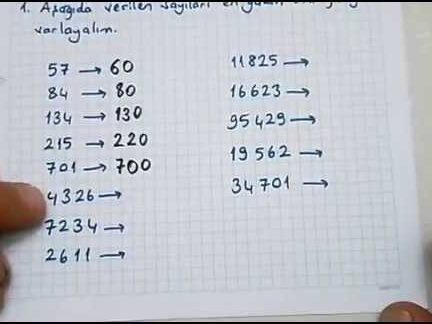 1. Aşağıda verilen sayıları en yakın
yuvarlayalım.
57 → 60
84 → 80
134 → 130
215 → 220
701 → 700
4326 →
7234 →
2611 →
11825 →
16623 →
95429 →
19562 →
34701 →